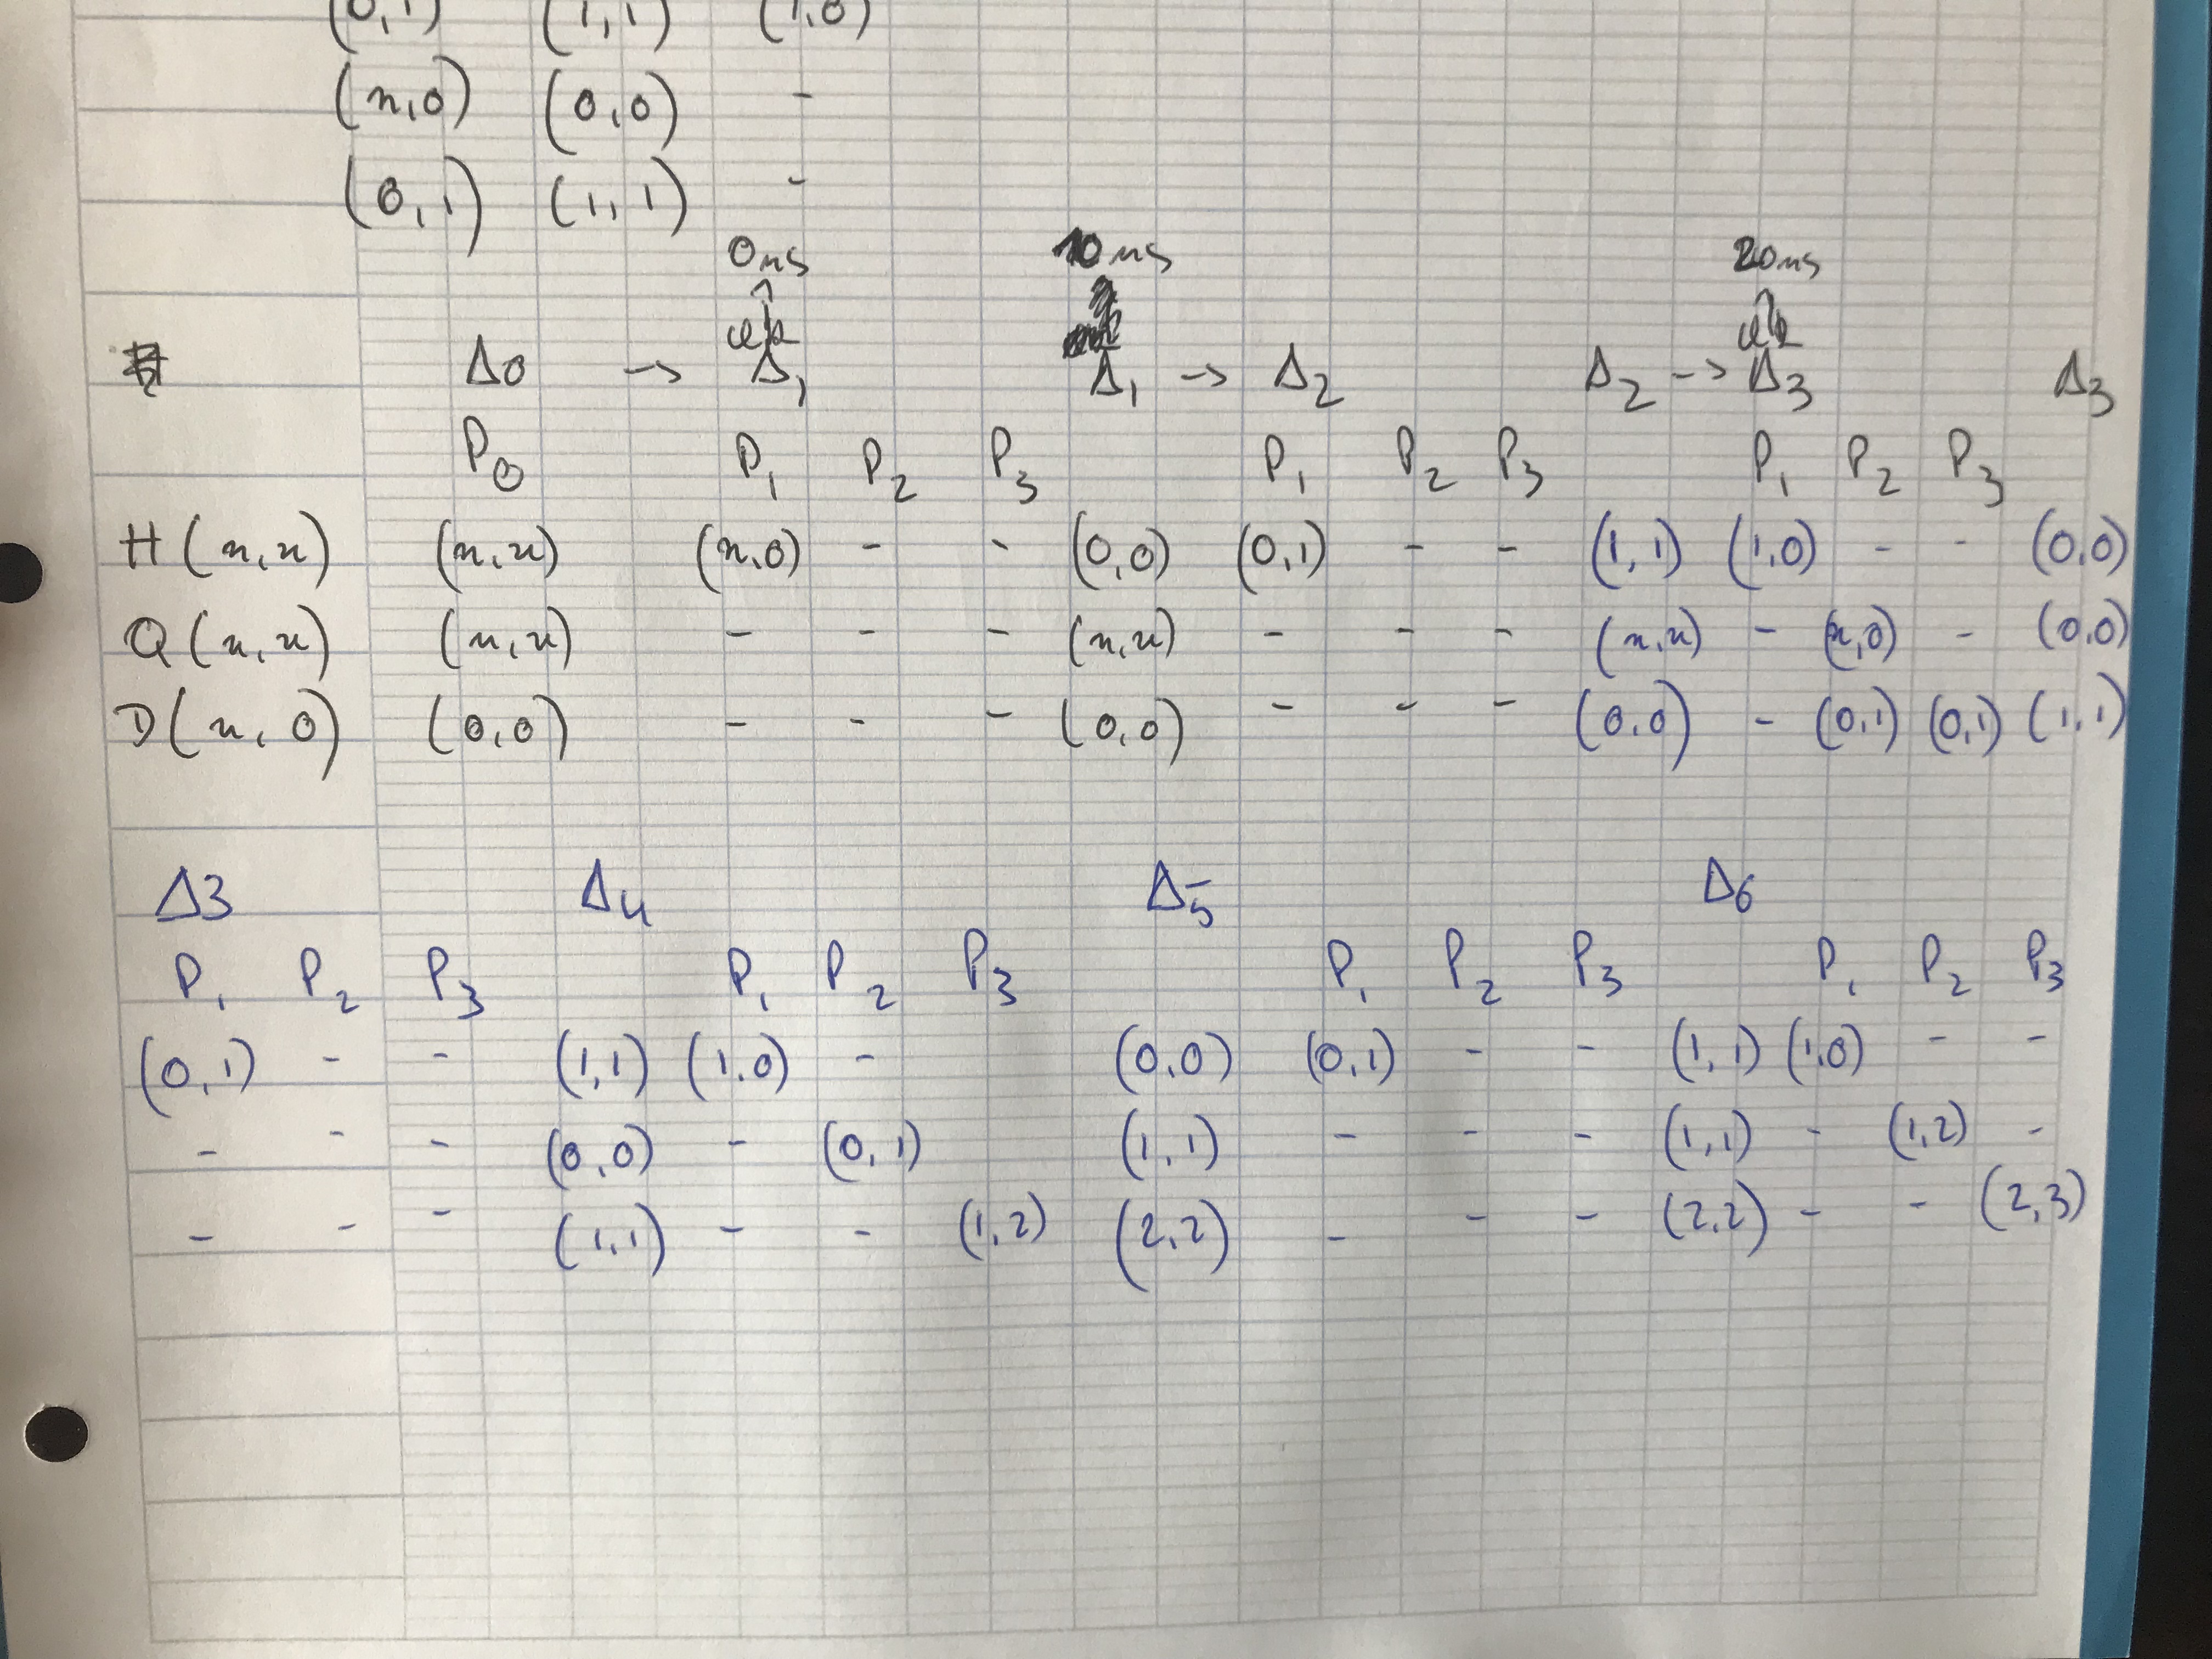 (0,1) (1,1) (1,0)
(u,0) (0,0) -
(0,1) (1,1) -
0ns 10ns 20ns
Δ0 -> Δ1 Δ1 -> Δ2 Δ2 -> Δ3 Δ3
P0 P1 P2 P3 P1 P2 P3 P1 P2 P3
H (u,u) (u,u) (u,0) - - (0,0) (0,1) - - (1,1) (1,0) - - (0,0)
Q (u,u) (u,u) - - - (u,u) - - - (u,u) - (u,0) - (0,0)
D (u,0) (0,0) - - - (0,0) - - - (0,0) - (0,1) (0,1) (1,1)
Δ3 Δ4 Δ5 Δ6
P1 P2 P3 P1 P2 P3 P1 P2 P3 P1 P2 P3
(0,1) - - (1,1) (1,0) - (0,0) (0,1) - - (1,1) (1,0) - -
- - - (0,0) - (0,1) (1,1) - - - (1,1) - (1,2) -
- - - (1,1) - - (1,2) (2,2) - - - (2,2) - - (2,3)